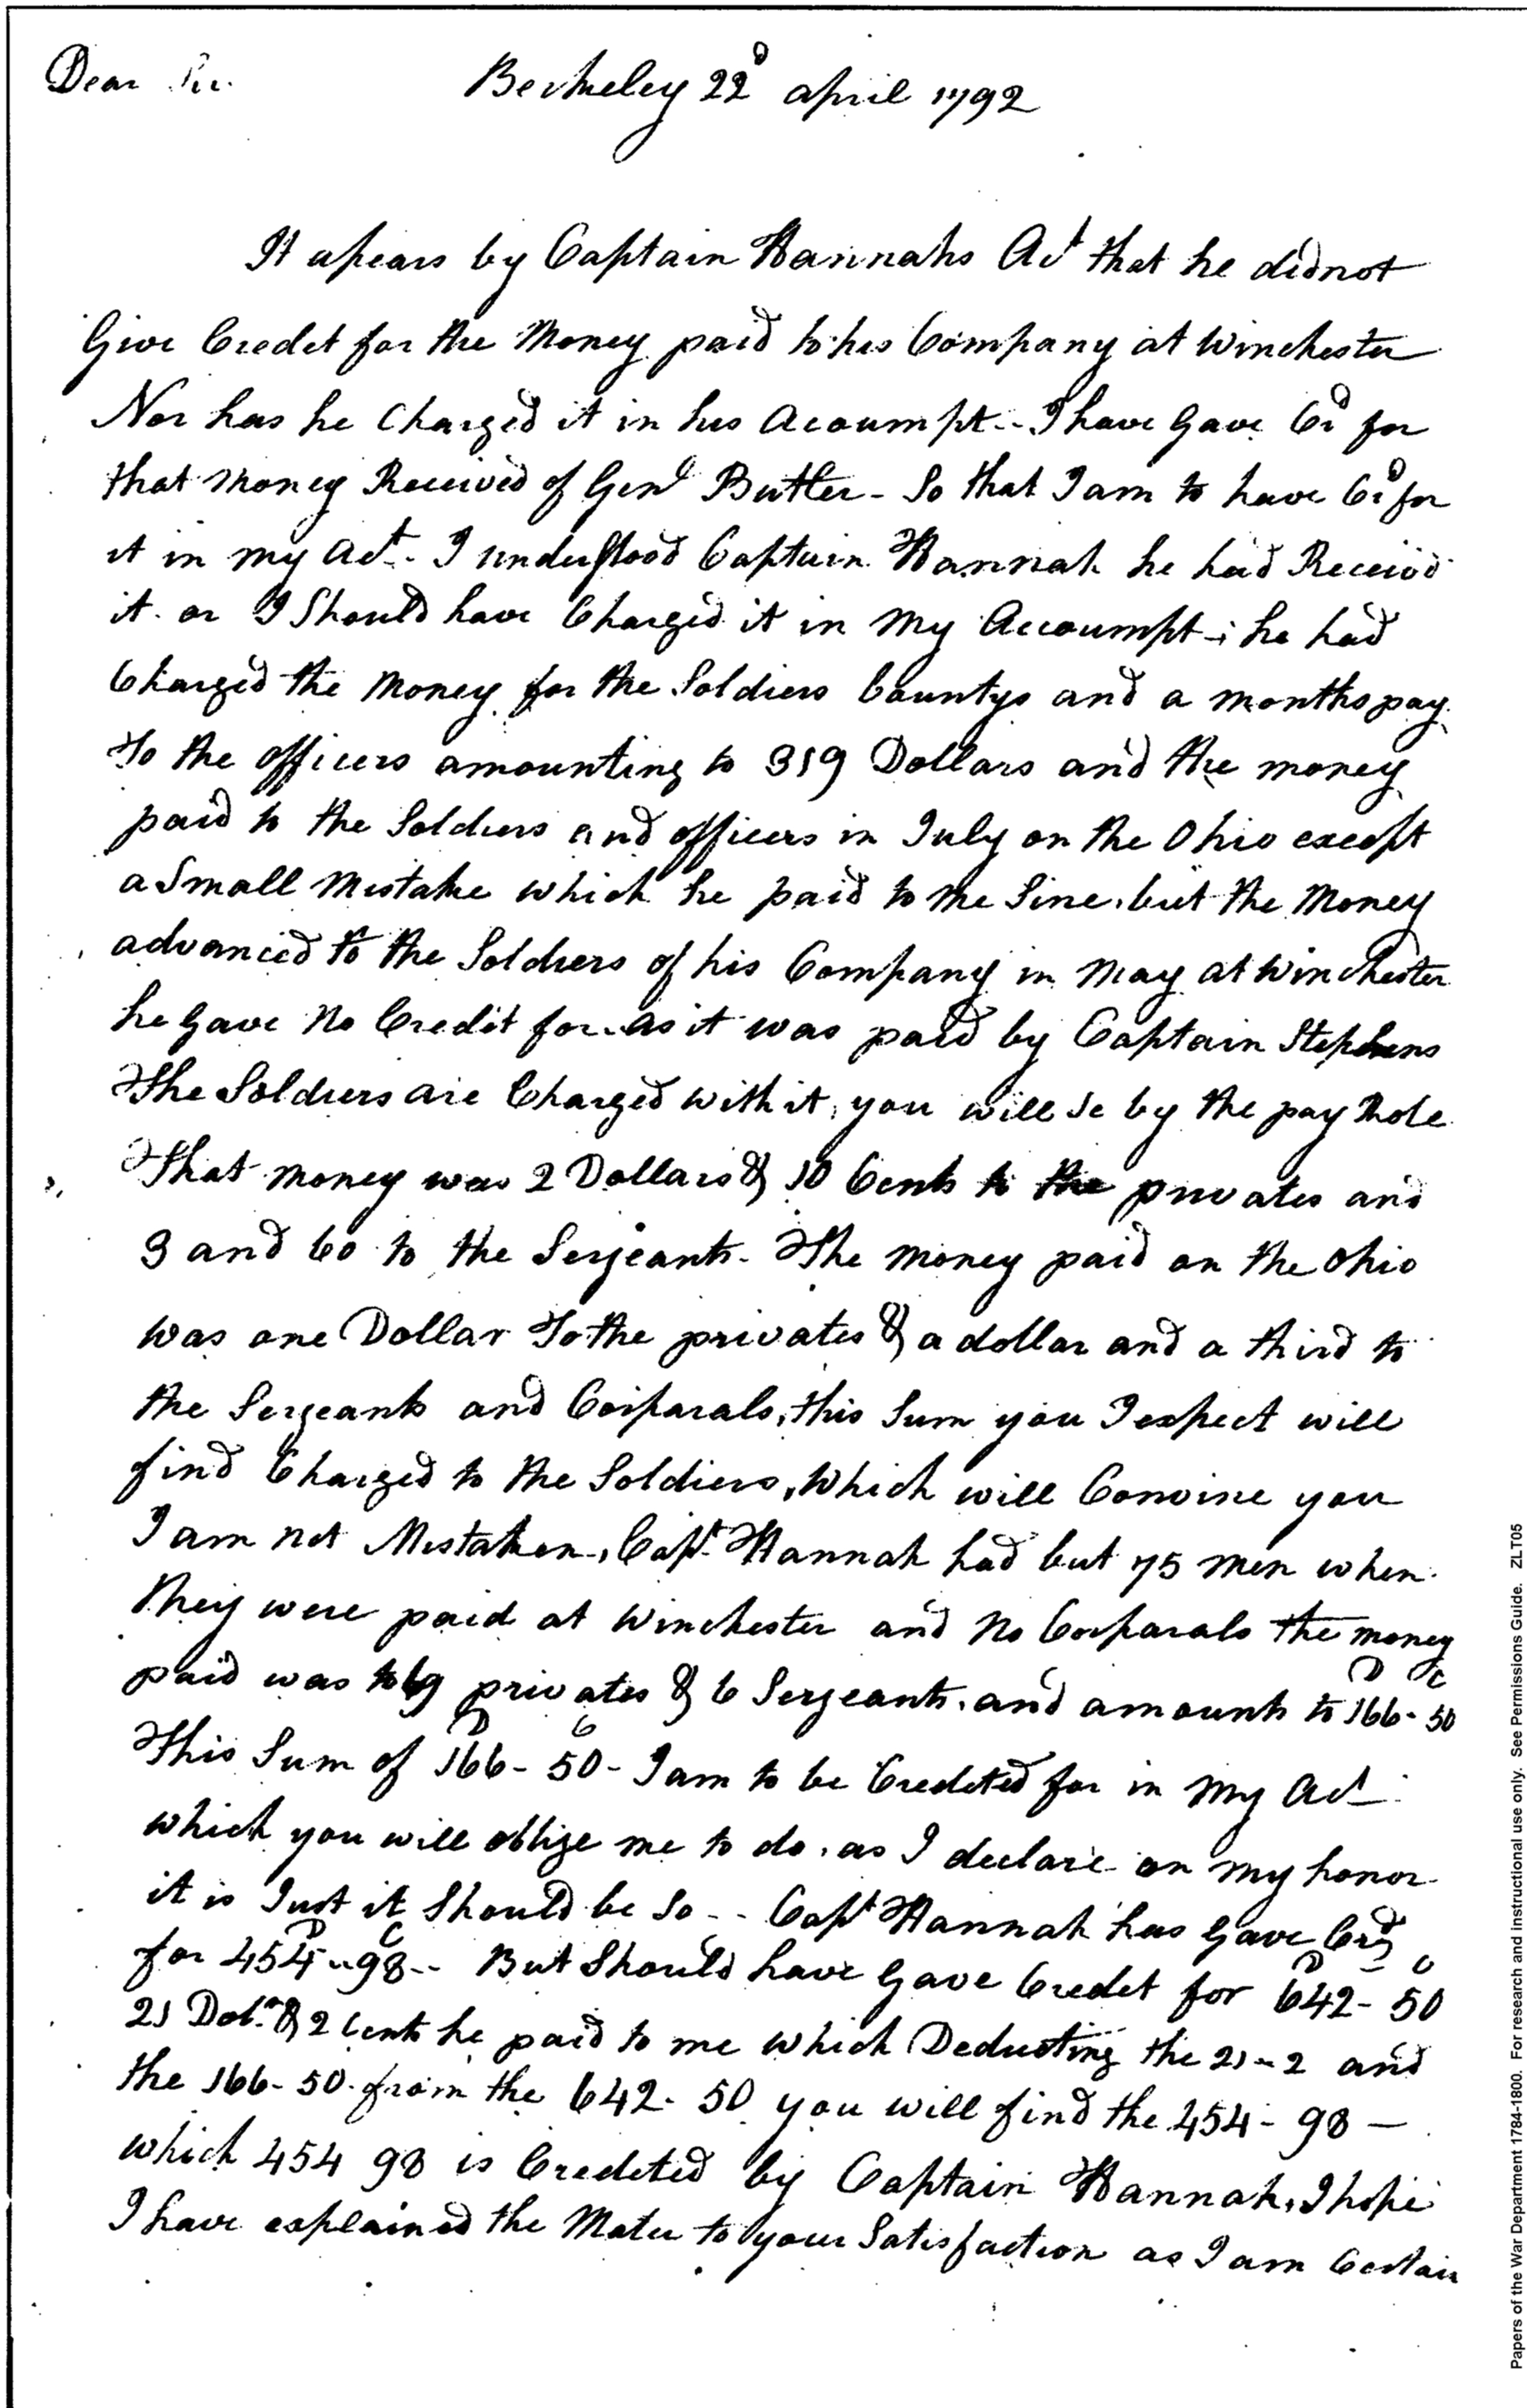 Dear Sir. Berkeley 22d april 1792
It apears by Captain Hannahs Act that he didnot
Give Credet for the Money paid to his Company at Winchester
Nor has he Charged it in his Acoumpt - I have Gave Cr for
that money Received of Genl Butler - So that I am to have Cr for
it in my Act - I understood Captain Hannah he had Receivd
it or I Should have Charged it in My Accoumpt - ; he had
Charged the Money for the Soldiers bountys and a months pay
To the officers amounting to 319 Dollars and the money
paid to the Soldiers and officers in July on the Ohio except
a Small Mistake which he paid to me Sine, but the Money
advanced to the Soldiers of his Company in May at Winchester
he Gave No Credit for - as it was paid by Captain Stephens
The Soldiers are Charged with it, you will Se by the pay Role
That money was 2 Dollars & 10 Cents to the privates and
3 and 60 to the Serjeants - The Money paid on the Ohio
was one Dollar To the privates & a dollar and a third to
the Serjeants and Corparals, this Sum you I expect will
find Charged to the Soldiers, Which will Convine you
I am not Mistaken, Capt Hannah had but 75 Men when
They were paid at Winchester and No Corparals the money
paid was to 69 privates & 6 Serjeants, and amounts to 166D - 50C
This Sum of 166D - 50C - I am to be Credeted for in My Act -
which you will oblige me to do, as I declare on my honor
it is Just it Should be So - - Capt Hannah has Gave Crd
for 454D - 98C - - But Should have Gave Credet for 642D - 50C
21 Dolrs & 2 Cents he paid to me which Deducting the 21 - 2 and
the 166 - 50 from the 642 - 50 you will find the 454 - 98 -
which 454 98 is Credeted by Captain Hannah, I hope
I have explained the Mater to your Satisfaction as I am Certain
Papers of the War Department 1784-1800. For research and instructional use only. See Permissions Guide. ZLT05